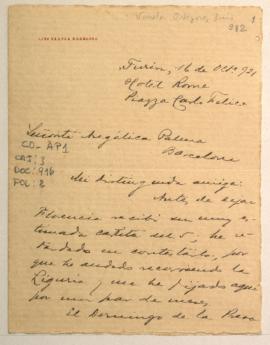 Varela Orbegoso, Luis
1
982
LUIS VARELA ORBEGOSO
Turin, 16 de Octe 921
Hotel Rome
Piazza Carlo Felice
Señorita Angélica Palma
Barcelona
CO-AP1
CAJ: 3
DOC: 916
FOL: 2
Mi distinguida amiga:
Antes de dejar
Florencia recibí su muy es-
timada cartita del 5; he re-
tardado en contestarla, por
que he andado recorriendo la
Liguria, y me he fijado aquí
por un par de meses.
El Domingo de la Prensa